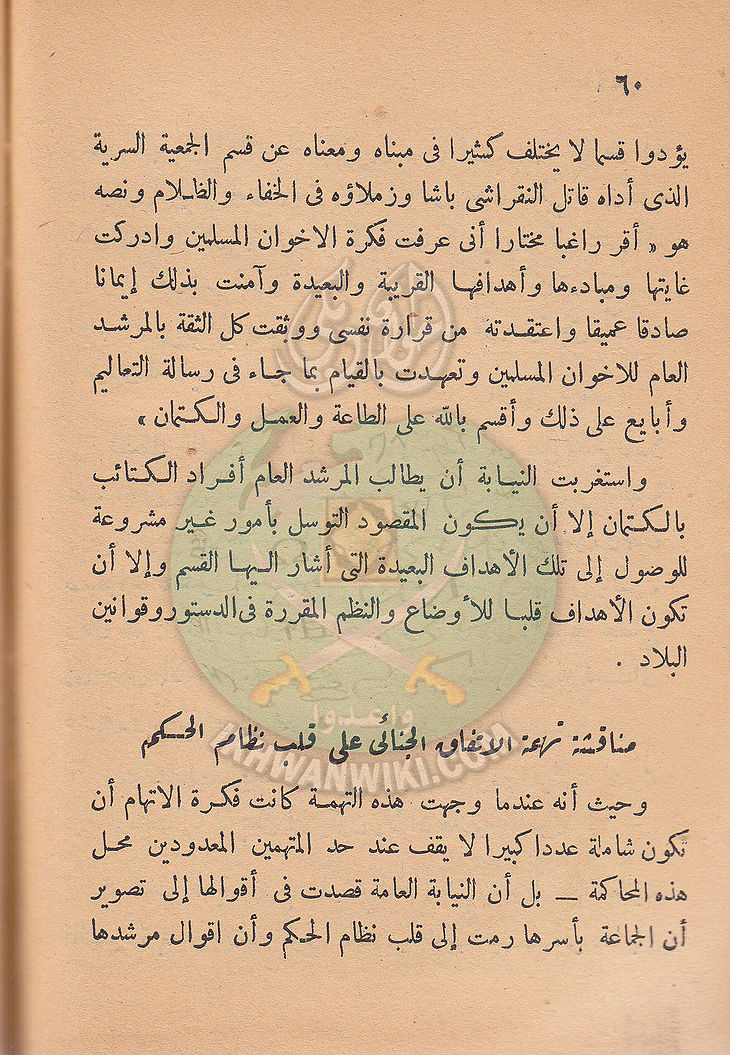 ٦٠
يؤدوا قسما لا يختلف كثيرا فى مبناه ومعناه عن قسم الجمعية السرية
الذى أداه قاتل النقراشى باشا وزملاؤه فى الخفاء والظلام ونصه
هو « أقر راغبا مختارا أنى عرفت فكرة الاخوان المسلمين وادركت
غايتها ومبادءها وأهدافها القريبة والبعيدة وآمنت بذلك إيمانا
صادقا عميقا واعتقدته من قرارة نفسى ووثقت كل الثقة بالمرشد
العام للاخوان المسلمين وتعهدت بالقيام بما جاء فى رسالة التعاليم
وأبايع على ذلك وأقسم بالله على الطاعة والعمل والكتمان »
واستغربت النيابة أن يطالب المرشد العام أفراد الكتائب
بالكتمان إلا أن يكون المقصود التوسل بأمور غير مشروعة
للوصول إلى تلك الأهداف البعيدة التى أشار اليها القسم وإلا أن
تكون الأهداف قلبا للأوضاع والنظم المقررة فى الدستور وقوانين
البلاد .
واعدوا
مناقشة تهمة الاتفاق الجنائى على قلب نظام الحكم
IKHWANWIKI.COM
وحيث أنه عندما وجهت هذه التهمة كانت فكرة الاتهام أن
تكون شاملة عددا كبيرا لا يقف عند حد المتهمين المعدودين محل
هذه المحاكمة — بل أن النيابة العامة قصدت فى أقوالها إلى تصوير
أن الجماعة بأسرها رمت إلى قلب نظام الحكم وأن اقوال مرشدها